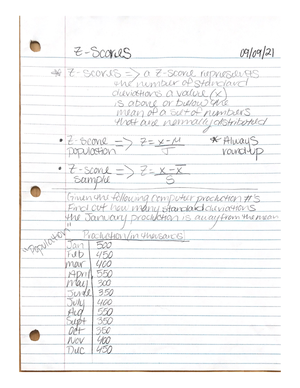 Z-Scores 09/09/21
* Z-Scores => a z-score represents
the number of standard
deviations a value (x)
is above or below the
mean of a set of numbers
that are normally distributed
• Z-score => Z = x-μ * Always
population σ round up
• Z-score => Z = x-x̄
sample S
Given the following computer production #s
Find out how many standard deviations
the January production is away from the mean
"Population"
Production (in thousands)
Jan 500
Feb 450
mar 400
April 550
may 300
June 350
July 400
Aug 550
Sept 350
Oct 350
Nov 400
Dec 450